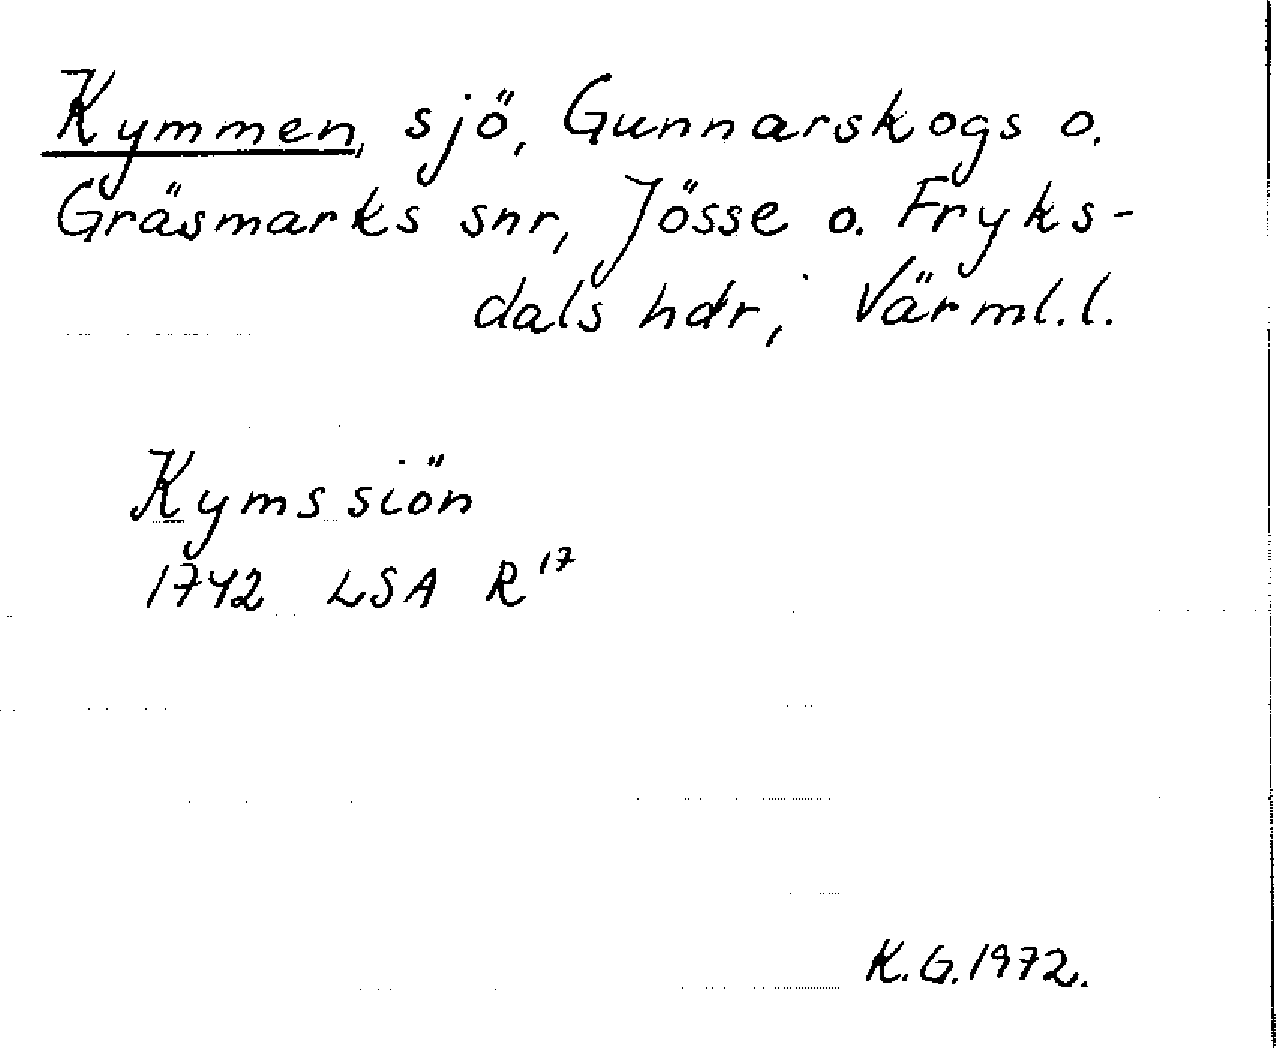 Kymmen, sjö, Gunnarskogs o.
Gräsmarks snr, Jösse o. Fryks-
dals hdr, Värml.l.
Kymssiön
1742 LSA R17
K.G.1972.